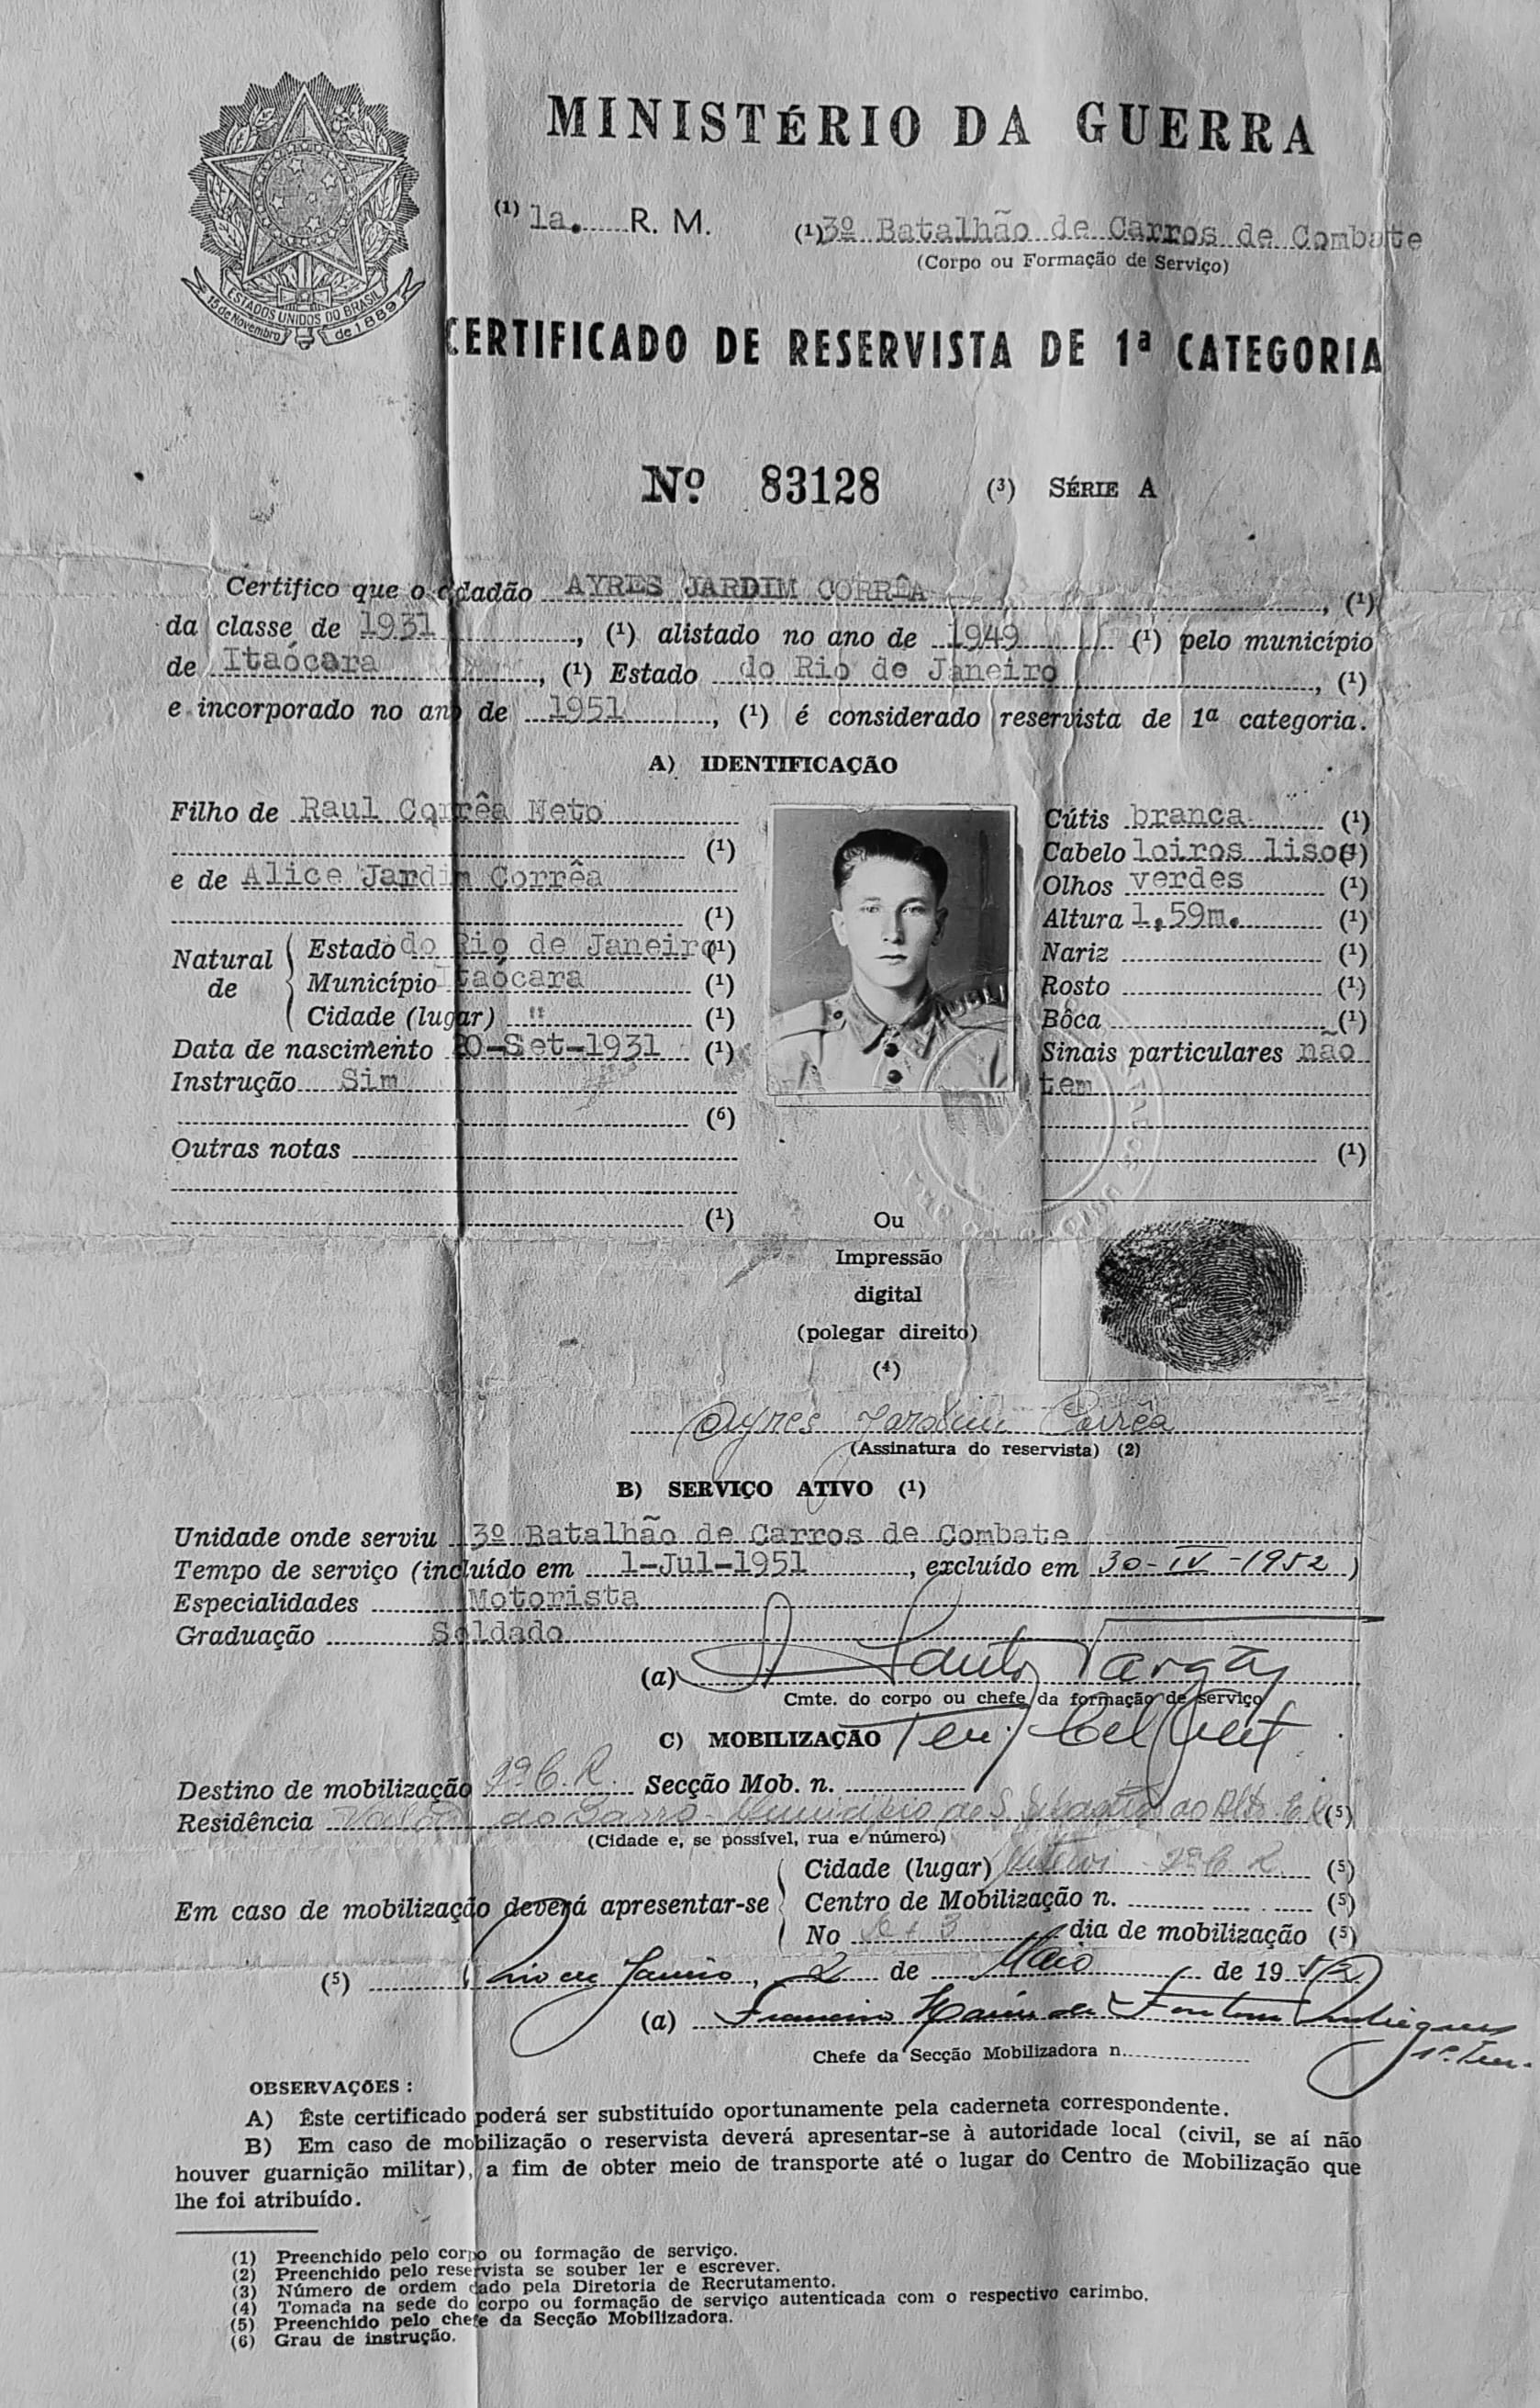 MINISTÉRIO DA GUERRA
(1) 1a. R. M. (1) 3º Batalhão de Carros de Combate
(Corpo ou Formação de Serviço)
ESTADOS UNIDOS DO BRASIL
15 de Novembro de 1889
CERTIFICADO DE RESERVISTA DE 1ª CATEGORIA
Nº 83128 (3) SÉRIE A
Certifico que o cidadão AYRES JARDIM CORRÊA, (1)
da classe de 1931, (1) alistado no ano de 1949 (1) pelo município
de Itaócara, (1) Estado do Rio de Janeiro, (1)
e incorporado no ano de 1951, (1) é considerado reservista de 1ª categoria.
A) IDENTIFICAÇÃO
Filho de Raul Corrêa Neto
(1)
e de Alice Jardim Corrêa
(1)
Natural de
Estado do Rio de Janeiro (1)
Município Itaócara (1)
Cidade (lugar) " (1)
Data de nascimento 20-Set-1931 (1)
Instrução Sim
(6)
Outras notas
(1)
Cútis branca (1)
Cabelo loiros lisos (1)
Olhos verdes (1)
Altura 1,59m. (1)
Nariz (1)
Rosto (1)
Bôca (1)
Sinais particulares não
tem
(1)
Ou
Impressão
digital
(polegar direito)
(4)
Ayres Jardim Corrêa
(Assinatura do reservista) (2)
B) SERVIÇO ATIVO (1)
Unidade onde serviu 3º Batalhão de Carros de Combate
Tempo de serviço (incluído em 1-Jul-1951, excluído em 30-IV-1952)
Especialidades Motorista
Graduação Soldado
(a)
Cmte. do corpo ou chefe da formação de serviço
C) MOBILIZAÇÃO
Destino de mobilização 2ª C. R. Secção Mob. n.
Residência do Barro - Município de S. Sebastião do Alto (5)
(Cidade e, se possível, rua e número)
Em caso de mobilização deverá apresentar-se
Cidade (lugar) Niterói 2ª C. R. (5)
Centro de Mobilização n. (5)
No dia de mobilização (5)
(5) Rio de Janeiro, 2 de Maio de 1952
(a) Francisco
1º Ten.
Chefe da Secção Mobilizadora n.
OBSERVAÇÕES:
A) Êste certificado poderá ser substituído oportunamente pela caderneta correspondente.
B) Em caso de mobilização o reservista deverá apresentar-se à autoridade local (civil, se aí não
houver guarnição militar), a fim de obter meio de transporte até o lugar do Centro de Mobilização que
lhe foi atribuído.
(1) Preenchido pelo corpo ou formação de serviço.
(2) Preenchido pelo reservista se souber ler e escrever.
(3) Número de ordem dado pela Diretoria de Recrutamento.
(4) Tomada na sede do corpo ou formação de serviço autenticada com o respectivo carimbo.
(5) Preenchido pelo chefe da Secção Mobilizadora.
(6) Grau de instrução.